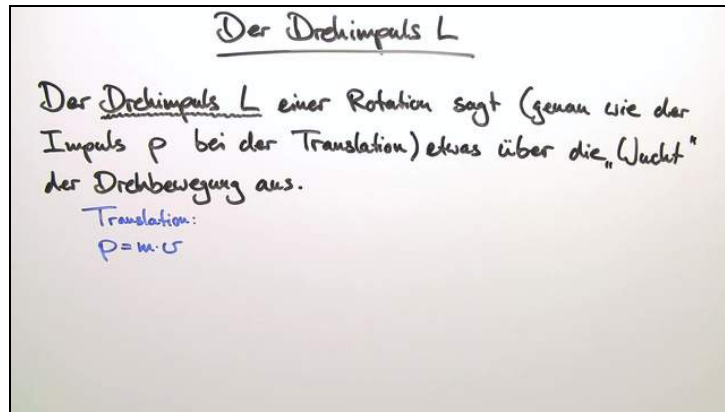 Der Drehimpuls L
Der Drehimpuls L einer Rotation sagt (genau wie der
Impuls p bei der Translation) etwas über die „Wucht"
der Drehbewegung aus.
Translation:
p = m · v